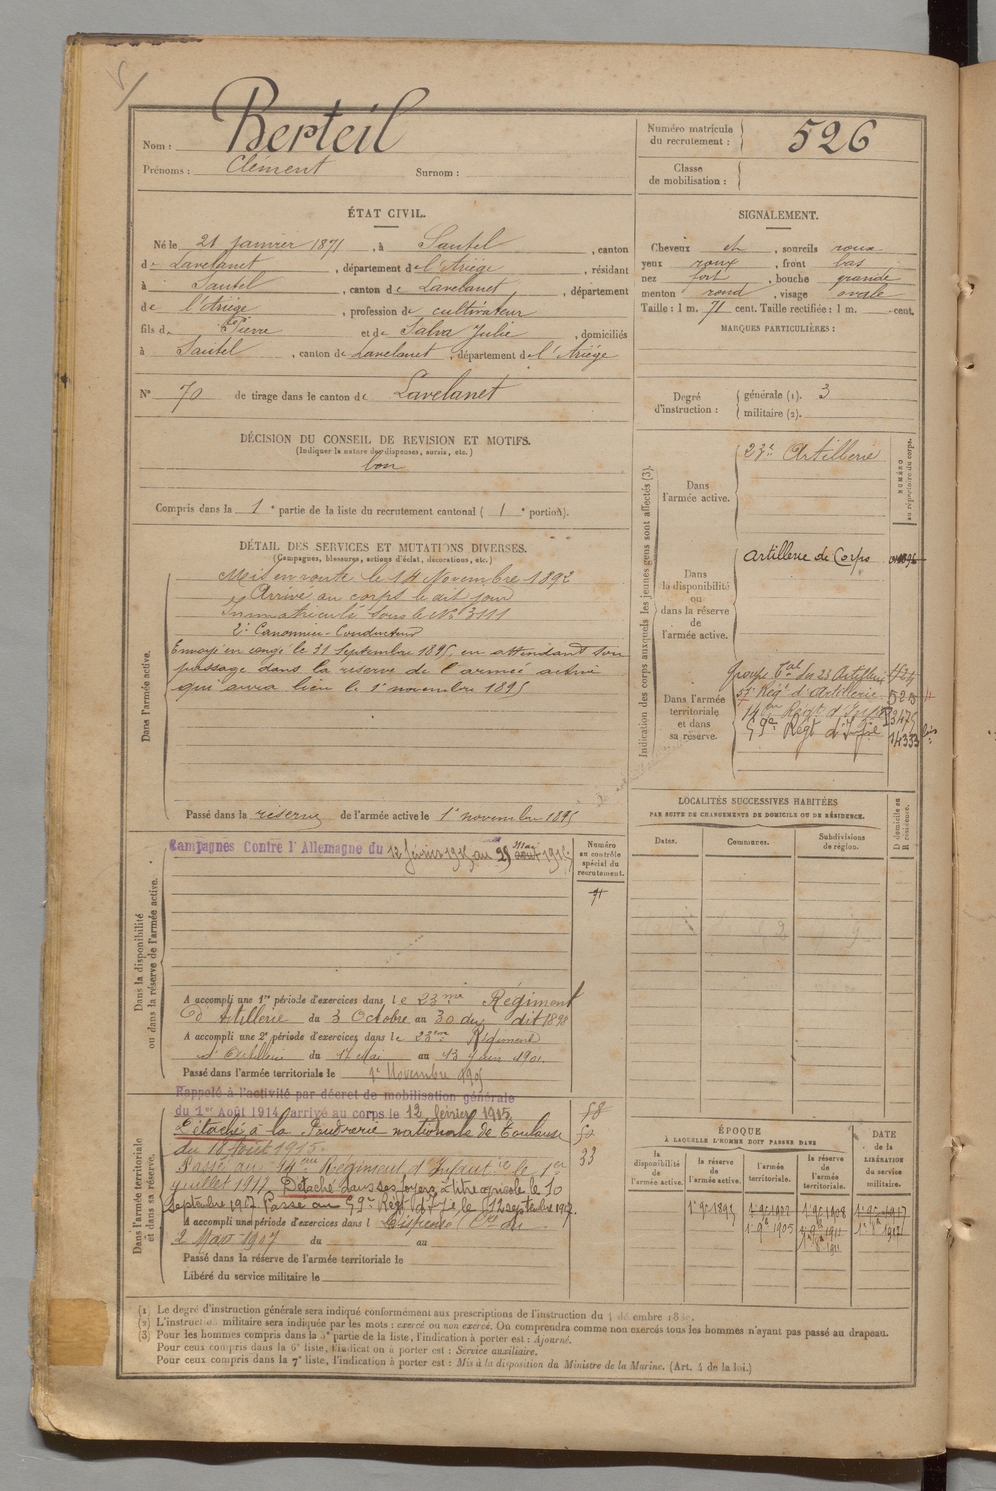 Nom : Berteil
Prénoms : Clément Surnom :
Numéro matricule du recrutement : 526
Classe de mobilisation :
ÉTAT CIVIL.
Né le 21 janvier 1871, à Sautel, canton
de Lavelanet, département de l'Ariège, résidant
à Sautel, canton de Lavelanet, département
de l'Ariège, profession de cultivateur
fils de Pierre et de Salva Julie, domiciliés
à Sautel, canton de Lavelanet, département de l'Ariège
N° 70 de tirage dans le canton de Lavelanet
SIGNALEMENT.
Cheveux et, sourcils roux
yeux roux, front bas
nez fort, bouche grande
menton rond, visage ovale
Taille : 1 m. 71 cent. Taille rectifiée : 1 m. cent.
MARQUES PARTICULIÈRES :
Degré d'instruction : générale (1). 3
militaire (2).
DÉCISION DU CONSEIL DE REVISION ET MOTIFS.
(Indiquer la nature des dispenses, sursis, etc.)
bon
Compris dans la 1e partie de la liste du recrutement cantonal ( 1e portion).
DÉTAIL DES SERVICES ET MUTATIONS DIVERSES.
(Campagnes, blessures, actions d'éclat, décorations, etc.)
Dans l'armée active.
Mis en route le 14 Novembre 1892
Arrivé au corps le dit jour
Immatriculé sous le N° 3111
2e Canonnier-Conducteur
Envoyé en congé le 31 Septembre 1895, en attendant son
passage dans la réserve de l'armée active
qui aura lieu le 1er novembre 1895
Passé dans la réserve de l'armée active le 1er novembre 1895
Indication des corps auxquels les jeunes gens sont affectés (3).
NUMÉRO au répertoire du corps.
Dans l'armée active.
23e Artillerie
Dans la disponibilité ou dans la réserve de l'armée active.
Artillerie de Corps
Dans l'armée territoriale et dans sa réserve.
Groupe Tal du 23 Artillerie 424
57e Régt d'Artillerie 525
14eme Régt d'Infie 13475
59e Régt d'Infie 14333 bis
LOCALITÉS SUCCESSIVES HABITÉES
PAR SUITE DE CHANGEMENTS DE DOMICILE OU DE RÉSIDENCE.
Dates. Communes. Subdivisions de région. D domicile ou R résidence.
Dans la disponibilité ou dans la réserve de l'armée active.
Numéro au contrôle spécial du recrutement.
Campagnes Contre l'Allemagne du 12 février 1915 au
A accompli une 1re période d'exercices dans le 23me Régiment
d'Artillerie du 3 Octobre au 30 du dit 1898
A accompli une 2e période d'exercices dans le 23eme Régiment
d'Artillerie du 17 Mai au 13 Juin 1901
Passé dans l'armée territoriale le 1er Novembre 1905
Dans l'armée territoriale et dans sa réserve.
Rappelé à l'activité par décret de mobilisation générale
du 1er Août 1914, arrivé au corps le 12 février 1915
58
Détaché à la Poudrerie nationale de Toulouse
du 18 Août 1915.
33
Passé au 14eme Régiment d'Infanterie le 1er
juillet 1917. Détaché dans ses foyers à titre agricole le 10
Septembre 1917 Passé au 59e Régt d'Infie le 12 septembre 1917.
A accompli une période d'exercices dans l Dispensé
2 Mars 1907 du au
Passé dans la réserve de l'armée territoriale le
Libéré du service militaire le
ÉPOQUE
À LAQUELLE L'HOMME DOIT PASSER DANS
la disponibilité de l'armée active.
la réserve de l'armée active.
l'armée territoriale.
la réserve de l'armée territoriale.
DATE de la LIBÉRATION du service militaire.
1er 9e 1895 1er 9e 1902 1er 9e 1908 1er 9e 1917
1er 9e 1905 1er 9e 1911
(1) Le degré d'instruction générale sera indiqué conformément aux prescriptions de l'instruction du
(2) L'instruction militaire sera indiquée par les mots : exercé ou non exercé. On comprendra comme non exercés tous les hommes n'ayant pas passé au drapeau.
(3) Pour les hommes compris dans la 5e partie de la liste, l'indication à porter est : Ajourné.
Pour ceux compris dans la 6e liste, l'indication à porter est : Service auxiliaire.
Pour ceux compris dans la 7e liste, l'indication à porter est : Mis à la disposition du Ministre de la Marine. (Art. 4 de la loi.)